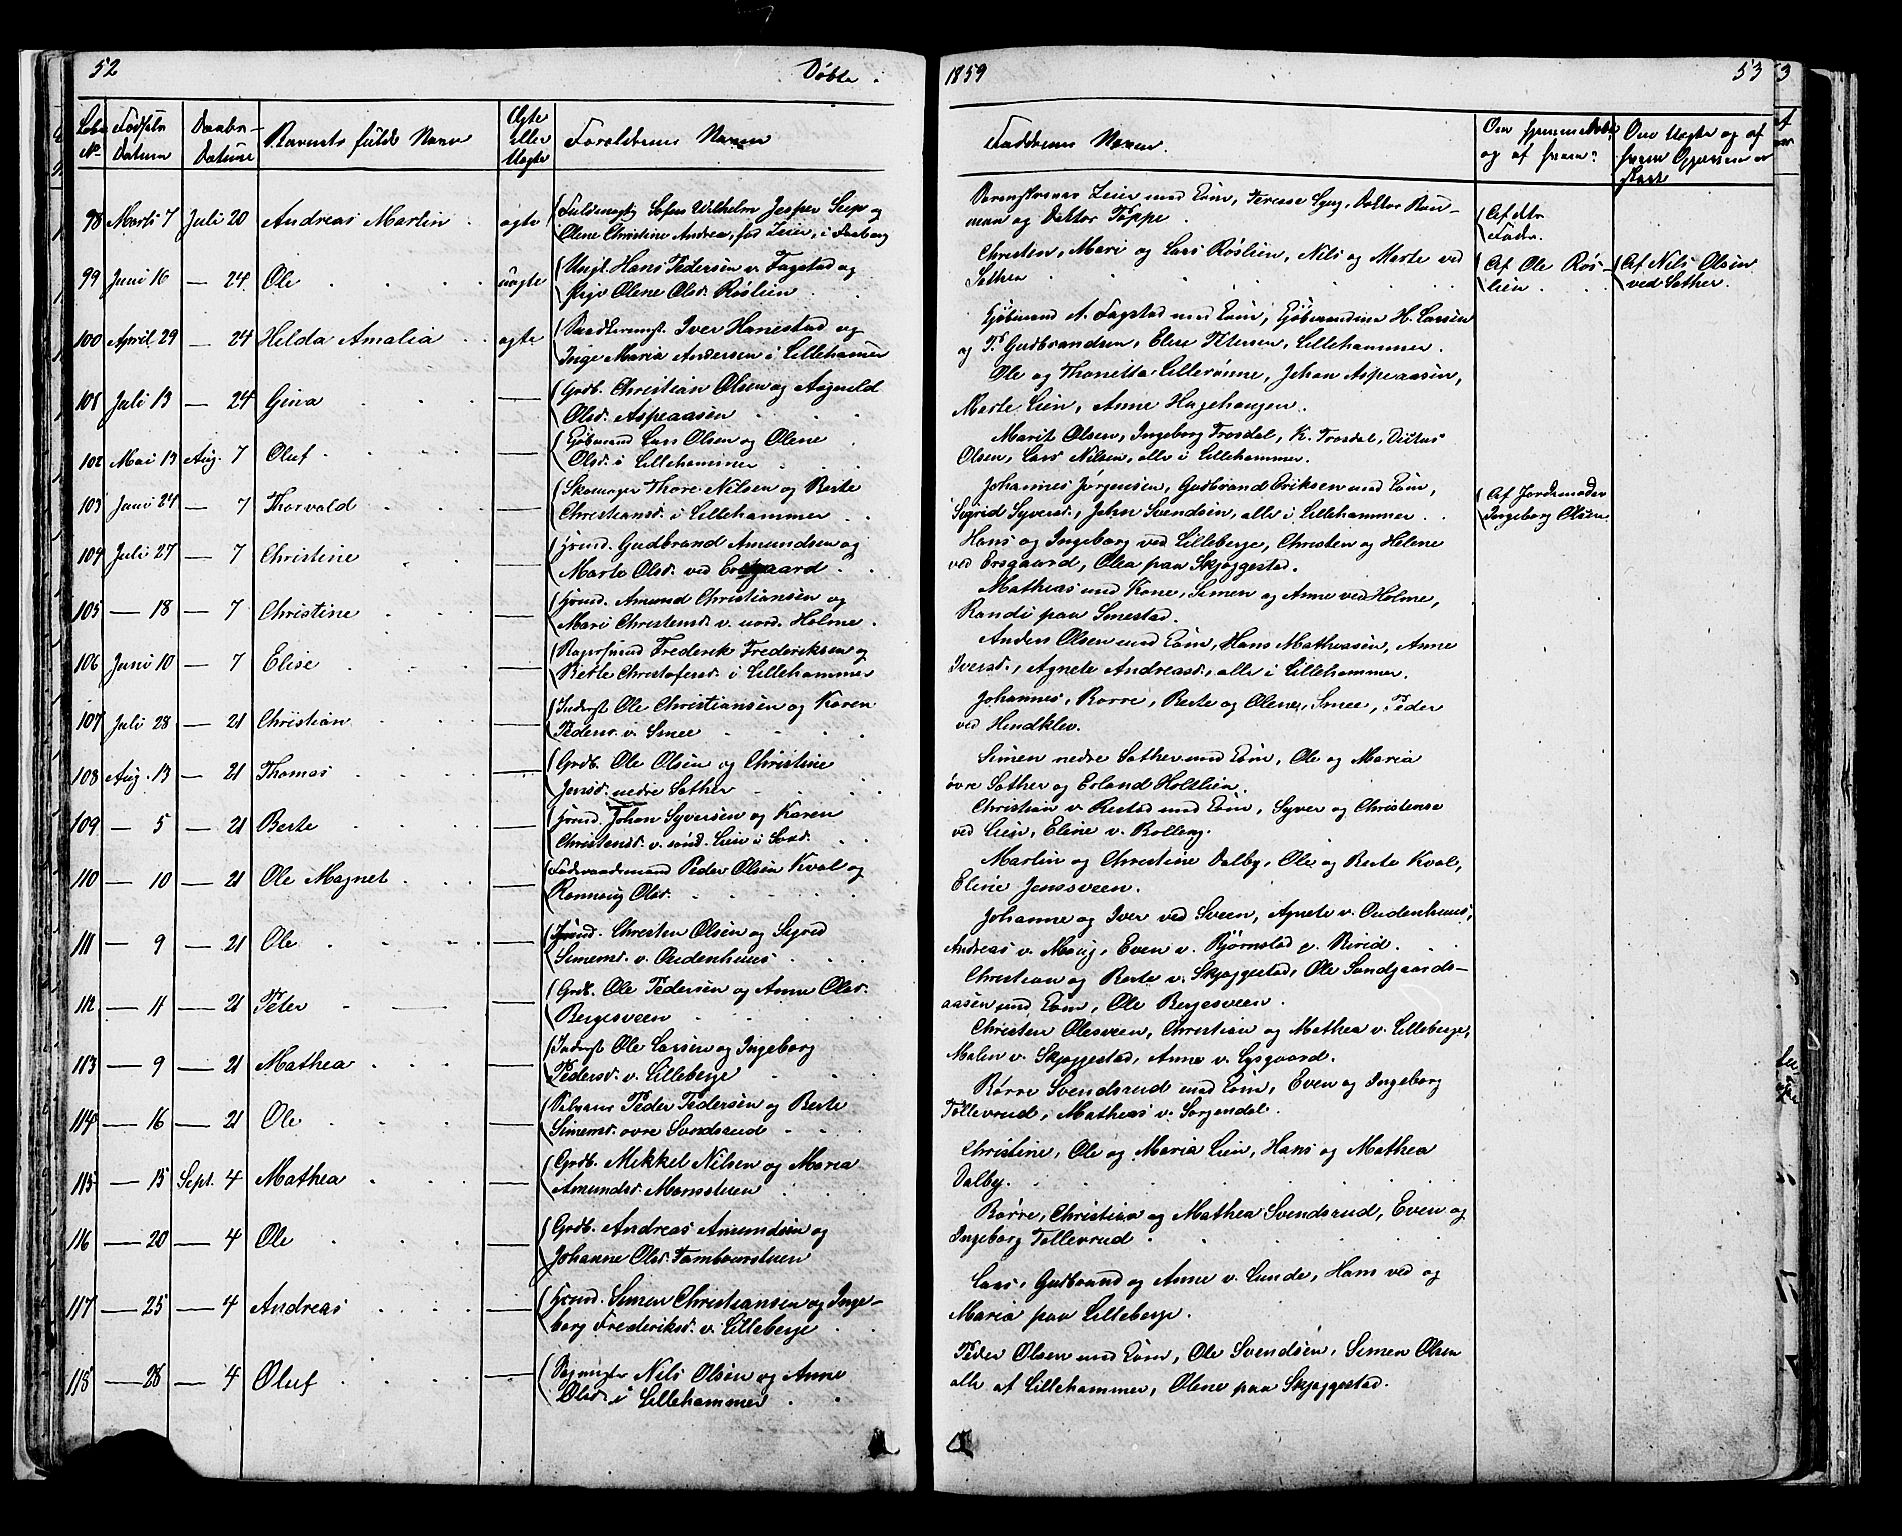 52
Døbte.
Løbe No.
Fødsels Datum
Daabs-Datum
Barnets fulde Navn
Ægte eller Uægte
Forældrenes Navne
98 Marts 7 Juli 20 Andreas Martin ægte Fuldmægtig Sofus Wilhelm Jesper Seip og
Olene Christine Andrea, fød Leier, i Faaberg
99 Juni 16 — 24 Ole uægte Ungk. Hans Pedersen v. Fagstad og
Pige Olene Olsd. Røslien
100 April 29 — 24 Hilda Amalia ægte Iver Hanestad og
Inge Maria Andersen i Lillehamer
101 Juli 13 — 24 Gina — Grdb. Christian Olsen og Aagnild
Olsd. Aspeaasen
102 Mai 13 Aug. 7 Oluf — Gjørtmand Lars Olsen og Olene
Olsd. i Lillehammer
103 Juni 24 — 7 Thorvald — Skomager Thore Nilsen og Berte
Christiansd. i Lillehammer
104 Juli 27 — 7 Christine — Hsmd. Gudbrand Amundsen og
Marte Olsd. ved Ersgaard
105 — 18 — 7 Christine — Hsmd. Amund Christiansen og
Mari Christensd. v. nord. Holme
106 Juni 10 — 7 Elise — Frederik Frederiksen og
Berte Christofersd. i Lillehammer
107 Juli 28 — 21 Christian — Inderst Ole Christiansen og Karen
Pedersd. v. Smee
108 Aug. 13 — 21 Thomas — Grdb. Ole Olsen og Christine
Jensd. nedre Sother
109 — 5 — 21 Berte — Hsmd. Johan Syversen og Karen
Christensd. v. sønd. Lien i
110 — 10 — 21 Ole Magnet — Føderaadsmand Peder Olsen Kval og
Rønnoug Olsd.
111 — 9 — 21 Ole — Hsmd. Christen Olsen og Sigrid
Simensd. v. Oudenhuus
112 — 11 — 21 Peter — Grdb. Ole Pedersen og Anne Olsd.
Bergesveen
113 — 9 — 21 Mathea — Inderst Ole Larsen og Ingeborg
Pedersd. v. Lilleberge
114 — 16 — 21 Ole — Selveier Peder Pedersen og Berte
Simensd. øvre Svendsrud
115 — 15 Sept. 4 Mathea — Grdb. Mikkel Nilsen og Maria
Amundsd. Monsstuen
116 — 20 — 4 Ole — Grdb. Andreas Amundsen og
Johanne Olsd. Tambourstuen
117 — 25 — 4 Andreas — Hsmd. Simen Christiansen og Inge-
borg Frederiksd. v. Lilleberge
118 — 28 — 4 Oluf — Nils Olsen og Anne
Olsd. i Lillehammer
1859
53
Faddernes Navne.
Om hjemmedøbt og af hvem?
Om Uægte og af hvem Opgivelsen er skeet
Leier med Kone, Terese Lyng, Doktor Bau-
mann og Doktor Toppe.
Af dets
Fader.
Christen, Mari og Lars Røslien, Nils og Marte ved
Sether
Af Ole Røs-
lien
Af Nils Olsen
ved Sother.
A. Fagstad med Kone, H. Larsen
og P. Gudbrandsen, Elise Petersen, Lillehammer.
Ole og Thonetta Lillerønne, Johan Aspeaasen,
Marte Lien, Anne Hagehaugen.
Marit Olsen, Ingeborg Trosdal, K. Trosdal, Ditlus
Olsen, Lars Nilsen, alle i Lillehammer.
Johannes Jørgensen, Gudbrand Eriksen med Kone,
Sigrid Syversd., John Svendsen, alle i Lillehammer
Af Jordemoder
Ingeborg Olsen.
Hans og Ingeborg ved Lilleberge, Christen og Helene
ved Ersgaard, Olea paa Skjøggestad.
Mathias med Kone, Simen og Anne ved Holme,
Randi paa Smestad.
Anders Olsen med Kone, Hans Mathiasen, Anne
Iversd., Agnete Andreasd., alle i Lillehammer.
Johannes, Børre, Berte og Olene, Smee, Peder
ved Hindklev.
Simen nedre Sother med Kone, Ole og Maria
øvre Sother og Erland Holtlien.
Christian v. Restad med Kone, Syver og Christense
ved Lien, Eline v. Rolberg.
Martin og Christine Dalby, Ole og Berte Kval,
Eline Jensveen.
Johanne og Iver ved Sveen, Agnete v. Oudenhuus,
Andreas v. Moug, Even v. Bjørnstad p. Birid.
Christian og Berte v. Skjøggestad, Ole Sandgaards-
aasen med Kone, Ole Bergesveen.
Christen Olesveen, Christian og Mathea v. Lilleberge,
Malen v. Skjøggestad, Anne v. Lysgaard.
Børre Svendsrud med Kone, Even og Ingeborg
Tollevrud, Mathias v. Sorgendal.
Christine, Ole og Maria Lien, Hans og Mathea
Dalby.
Børre, Christian og Mathea Svendsrud, Even og
Ingeborg Tollevrud.
Lars, Gudbrand og Anne v. Lunde, Hans ved og
Maria paa Lilleberge.
Peder Olsen med Kone, Ole Svendsen, Simen Olsen
alle af Lillehammer, Olene paa Skjøggestad.